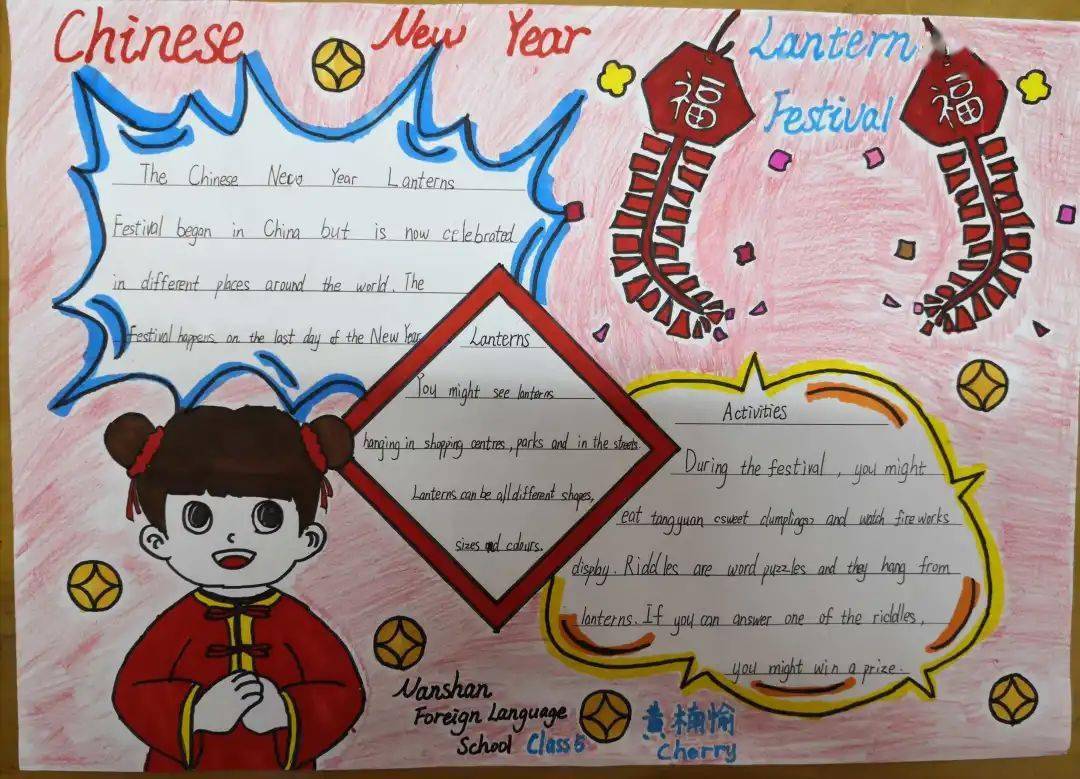 Chinese New Year
Lantern
Festival
福
福
The Chinese New Year Lanterns
Festival began in China but is now celebrated
in different places around the world. The
Festival happens on the last day of the New Year
Lanterns
You might see lanterns
hanging in shopping centres, parks and in the streets.
Lanterns can be all different shapes,
sizes and colours.
Activities
During the festival, you might
eat tangyuan (sweet dumplings) and watch fireworks
display. Riddles are word puzzles and they hang from
lanterns. If you can answer one of the riddles,
you might win a prize.
Nanshan
Foreign Language
School Class 5
黄楠愉
Cherry